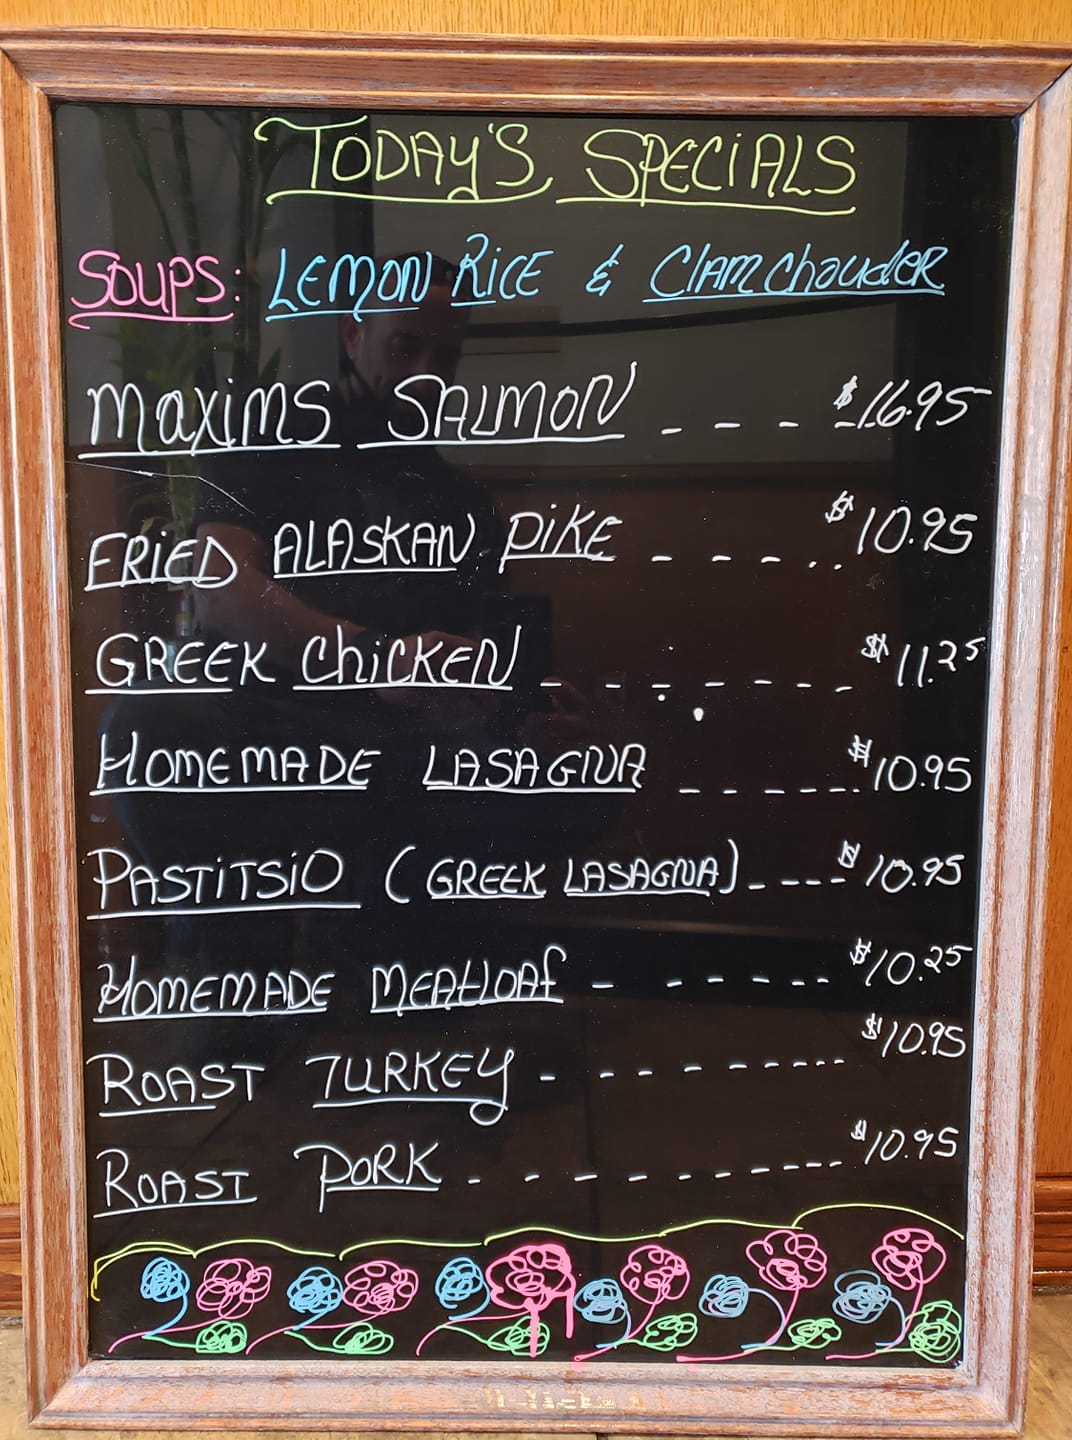 TODAY'S SPECIALS
SOUPS: LEMON RICE & Clam Chowder
MAXIMS SALMON - - - - $16.95
FRIED ALASKAN PIKE - - - - . . $10.95
GREEK ChiCKEN - - - - - - - $11.25
HOMEMADE LASAGNA - - - - - - . $10.95
PASTITSIO (GREEK LASAGNA) - - - - - $10.95
HOMEMADE MEATLOAF - - - - - - - $10.25
ROAST TURKEY - - - - - - - - - $10.95
ROAST PORK - - - - - - - - - - - $10.95